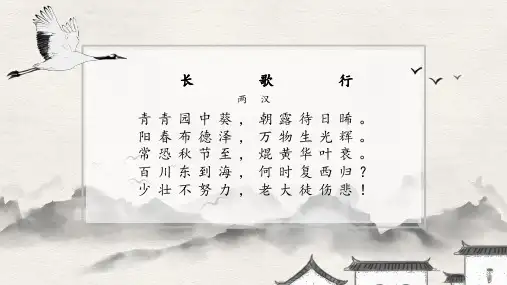 长歌行
两汉
青青园中葵，朝露待日晞。
阳春布德泽，万物生光辉。
常恐秋节至，焜黄华叶衰。
百川东到海，何时复西归？
少壮不努力，老大徒伤悲！